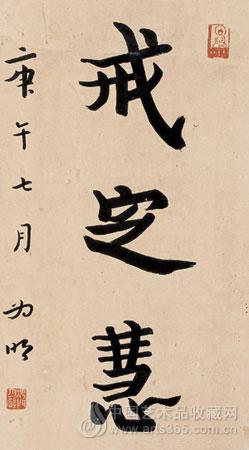 戒定慧
庚午七月 为明
中国艺术品收藏网
www.arts365.com.cn